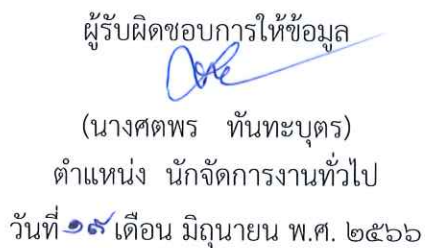 ผู้รับผิดชอบการให้ข้อมูล
(นางศตพร ทันทะบุตร)
ตำแหน่ง นักจัดการงานทั่วไป
วันที่ ๑๙ เดือน มิถุนายน พ.ศ. ๒๕๖๖